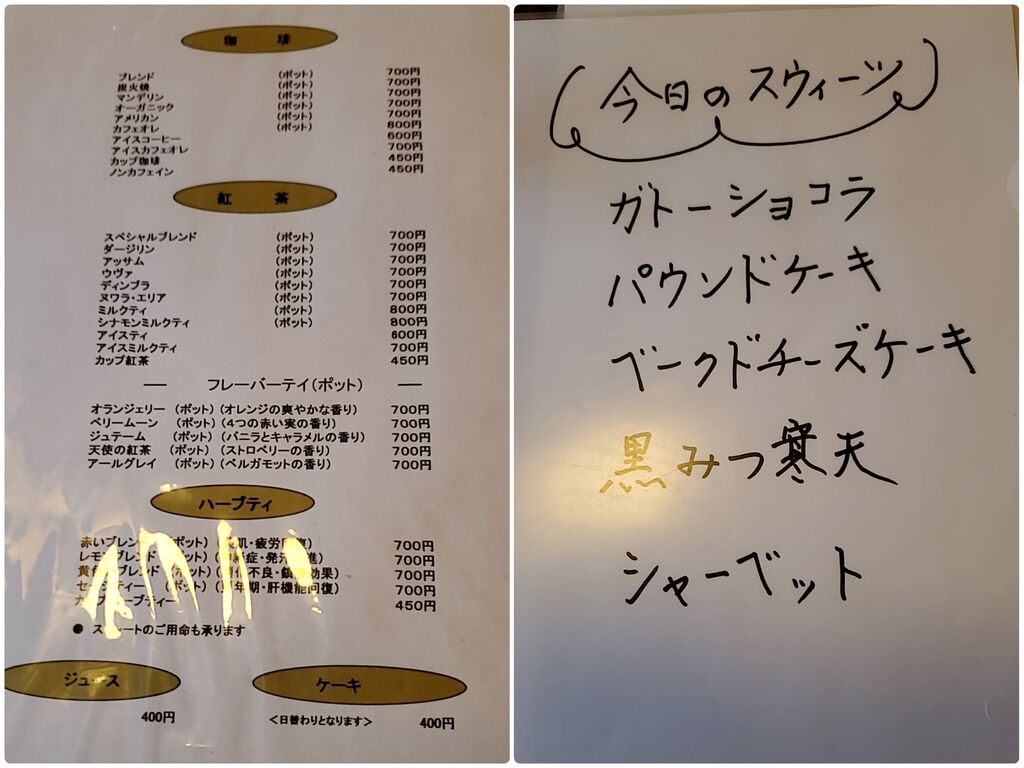 珈 琲
ブレンド (ポット) 700円
炭火焼 (ポット) 700円
マンデリン (ポット) 700円
オーガニック (ポット) 700円
アメリカン (ポット) 700円
カフェオレ (ポット) 800円
アイスコーヒー 600円
アイスカフェオレ 700円
カップ珈琲 450円
ノンカフェイン 450円
紅 茶
スペシャルブレンド (ポット) 700円
ダージリン (ポット) 700円
アッサム (ポット) 700円
ウヴァ (ポット) 700円
ディンブラ (ポット) 700円
ヌワラ・エリア (ポット) 700円
ミルクティ (ポット) 800円
シナモンミルクティ (ポット) 800円
アイスティ 600円
アイスミルクティ 700円
カップ紅茶 450円
― フレーバーテイ(ポット) ―
オランジェリー (ポット) (オレンジの爽やかな香り) 700円
ベリームーン (ポット) (4つの赤い実の香り) 700円
ジュテーム (ポット) (バニラとキャラメルの香り) 700円
天使の紅茶 (ポット) (ストロベリーの香り) 700円
アールグレイ (ポット) (ベルガモットの香り) 700円
ハーブティ
赤いブレンド (ポット) 疲労回復) 700円
レモンブレンド (ポット) 700円
ブレンド (ポット) 700円
(ポット) 肝機能回復) 700円
450円
● のご用命も承ります
ジュース
400円
ケーキ
<日替わりとなります> 400円
今日のスウィーツ
ガトーショコラ
パウンドケーキ
ベークドチーズケーキ
黒みつ寒天
シャーベット